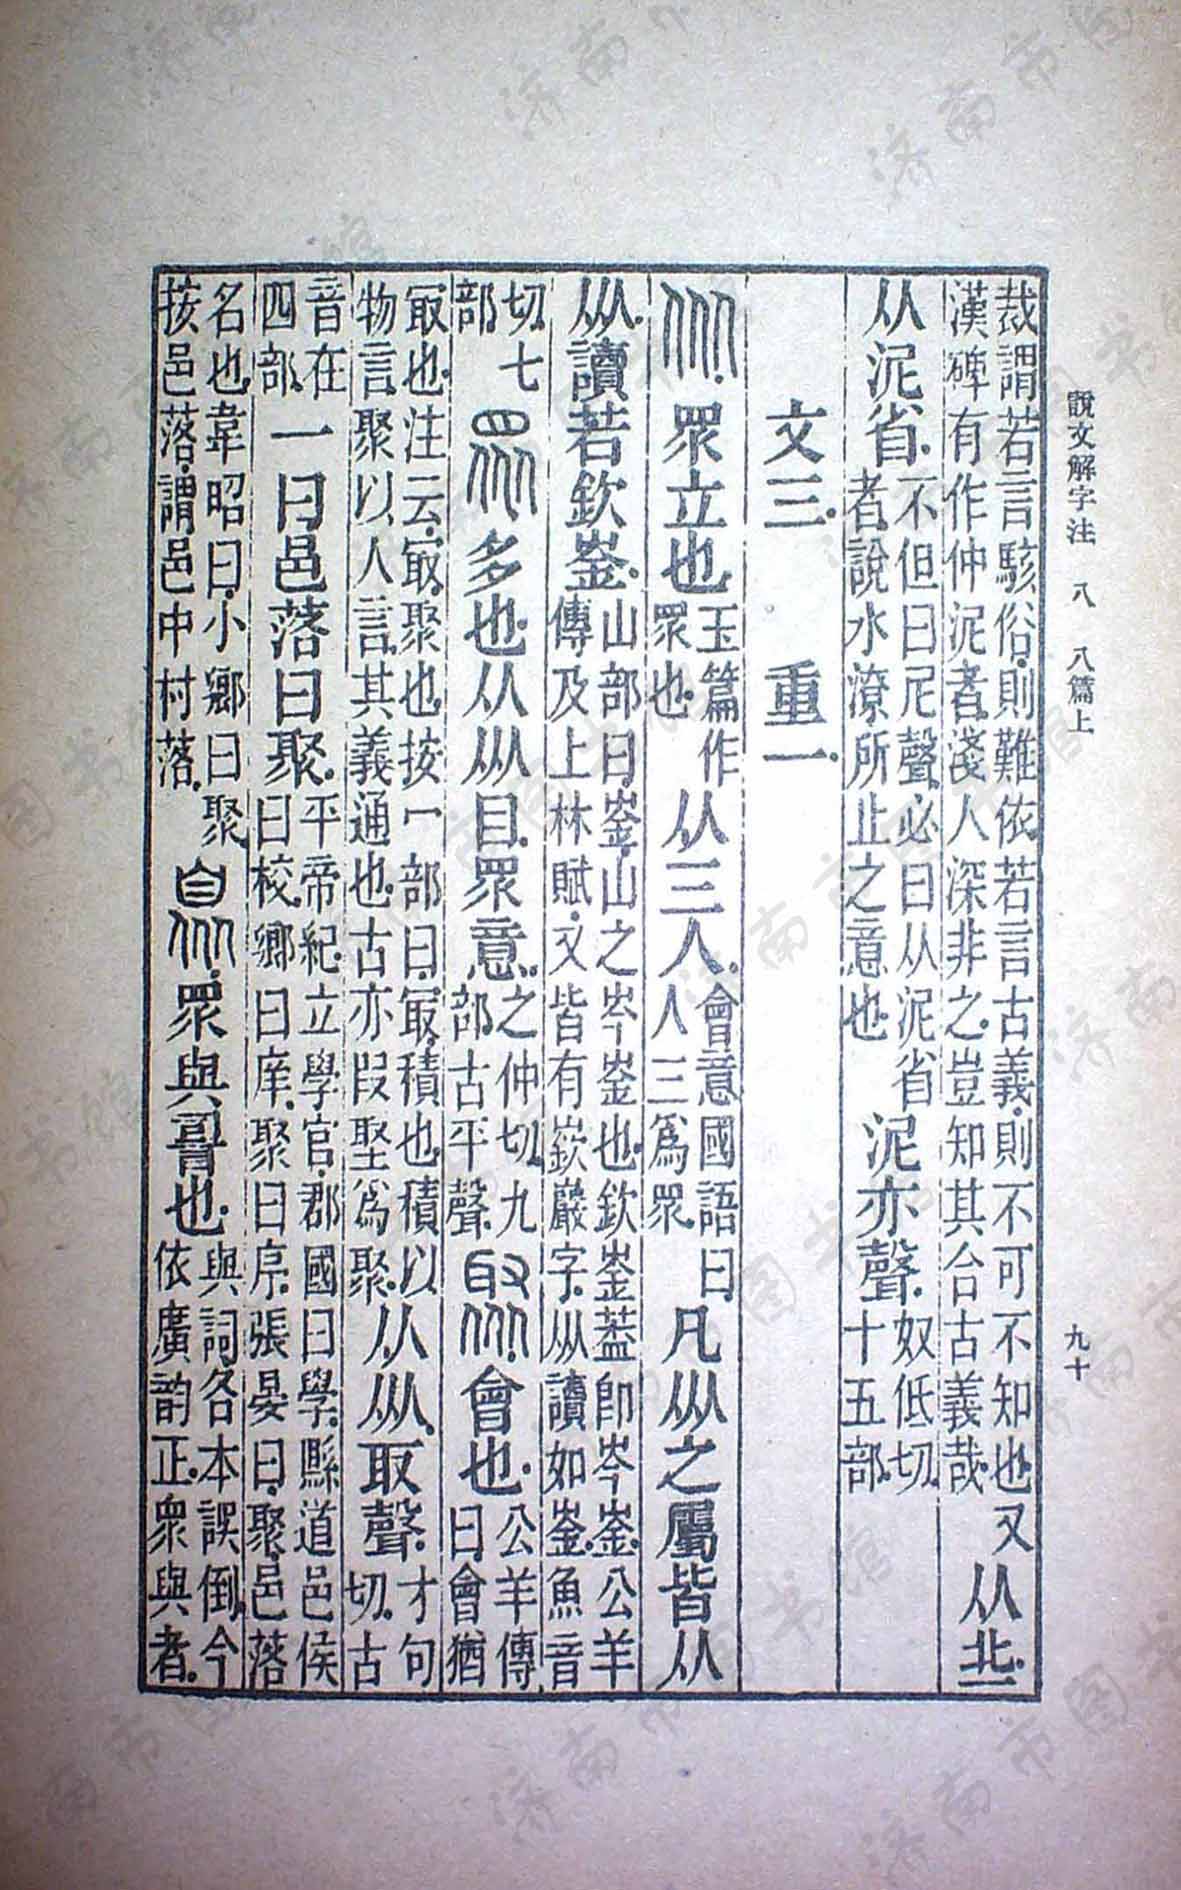 說文解字注 八 八篇上
九十
裁謂若言駭俗則難依若言古義則不可不知也又
漢碑有作仲泥者淺人深非之豈知其合古義哉
从北一
从泥省
不但曰尼聲必曰从泥省
者說水潦所止之意也
泥亦聲
奴低切
十五部
文三 重一
㐺 眾立也
玉篇作
眾也
从三人
會意國語曰
人三爲眾
凡㐺之屬皆从
㐺讀若欽崟
山部曰崟山之岑崟也欽崟葢卽岑崟公羊
傳及上林賦文皆有嶔巖字㐺讀如崟魚音
切七
部
眾 多也从㐺目眾意
之仲切九
部古平聲
聚 會也
公羊傳
曰會猶
冣也注云冣聚也按冖部曰冣積也積以
物言聚以人言其義通也古亦叚埾爲聚
从㐺取聲
才句
切古
音在
四部
一曰邑落曰聚
平帝紀立學官郡國曰學縣道邑侯
曰校鄉曰庠聚曰序張晏曰聚邑落
名也韋昭曰小鄉曰聚
按邑落謂邑中村落
臮 眾與䛐也
與詞各本誤倒今
依廣韵正眾與者
济南市图书馆